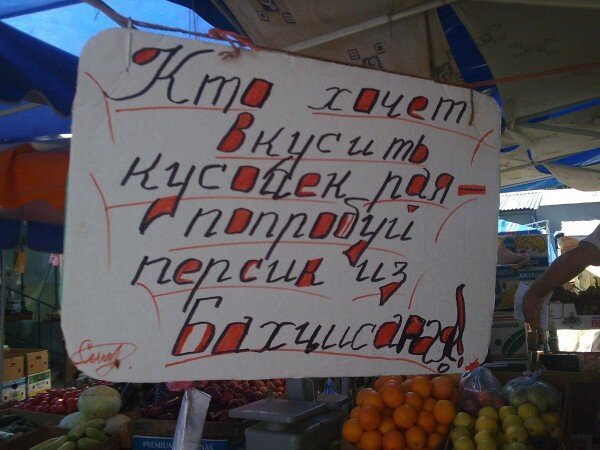 Кто хочет
вкусить
кусочек рая –
попробуй
персик из
Бахчисарая!
PREMIUM BANANAS